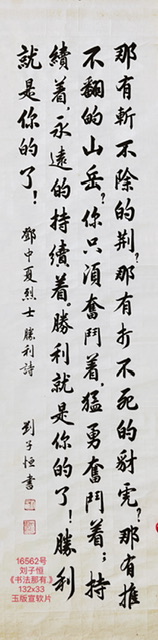 那有斬不除的荆?那有打不死的豺虎?那有推
不翻的山岳?你只須奮鬥着,猛勇奮鬥着;持
續着,永遠的持續着。勝利就是你的了!勝利
就是你的了!鄧中夏烈士勝利詩 劉子恒書
16562号
刘子恒
《书法那有.》
132x33
玉版宣软片